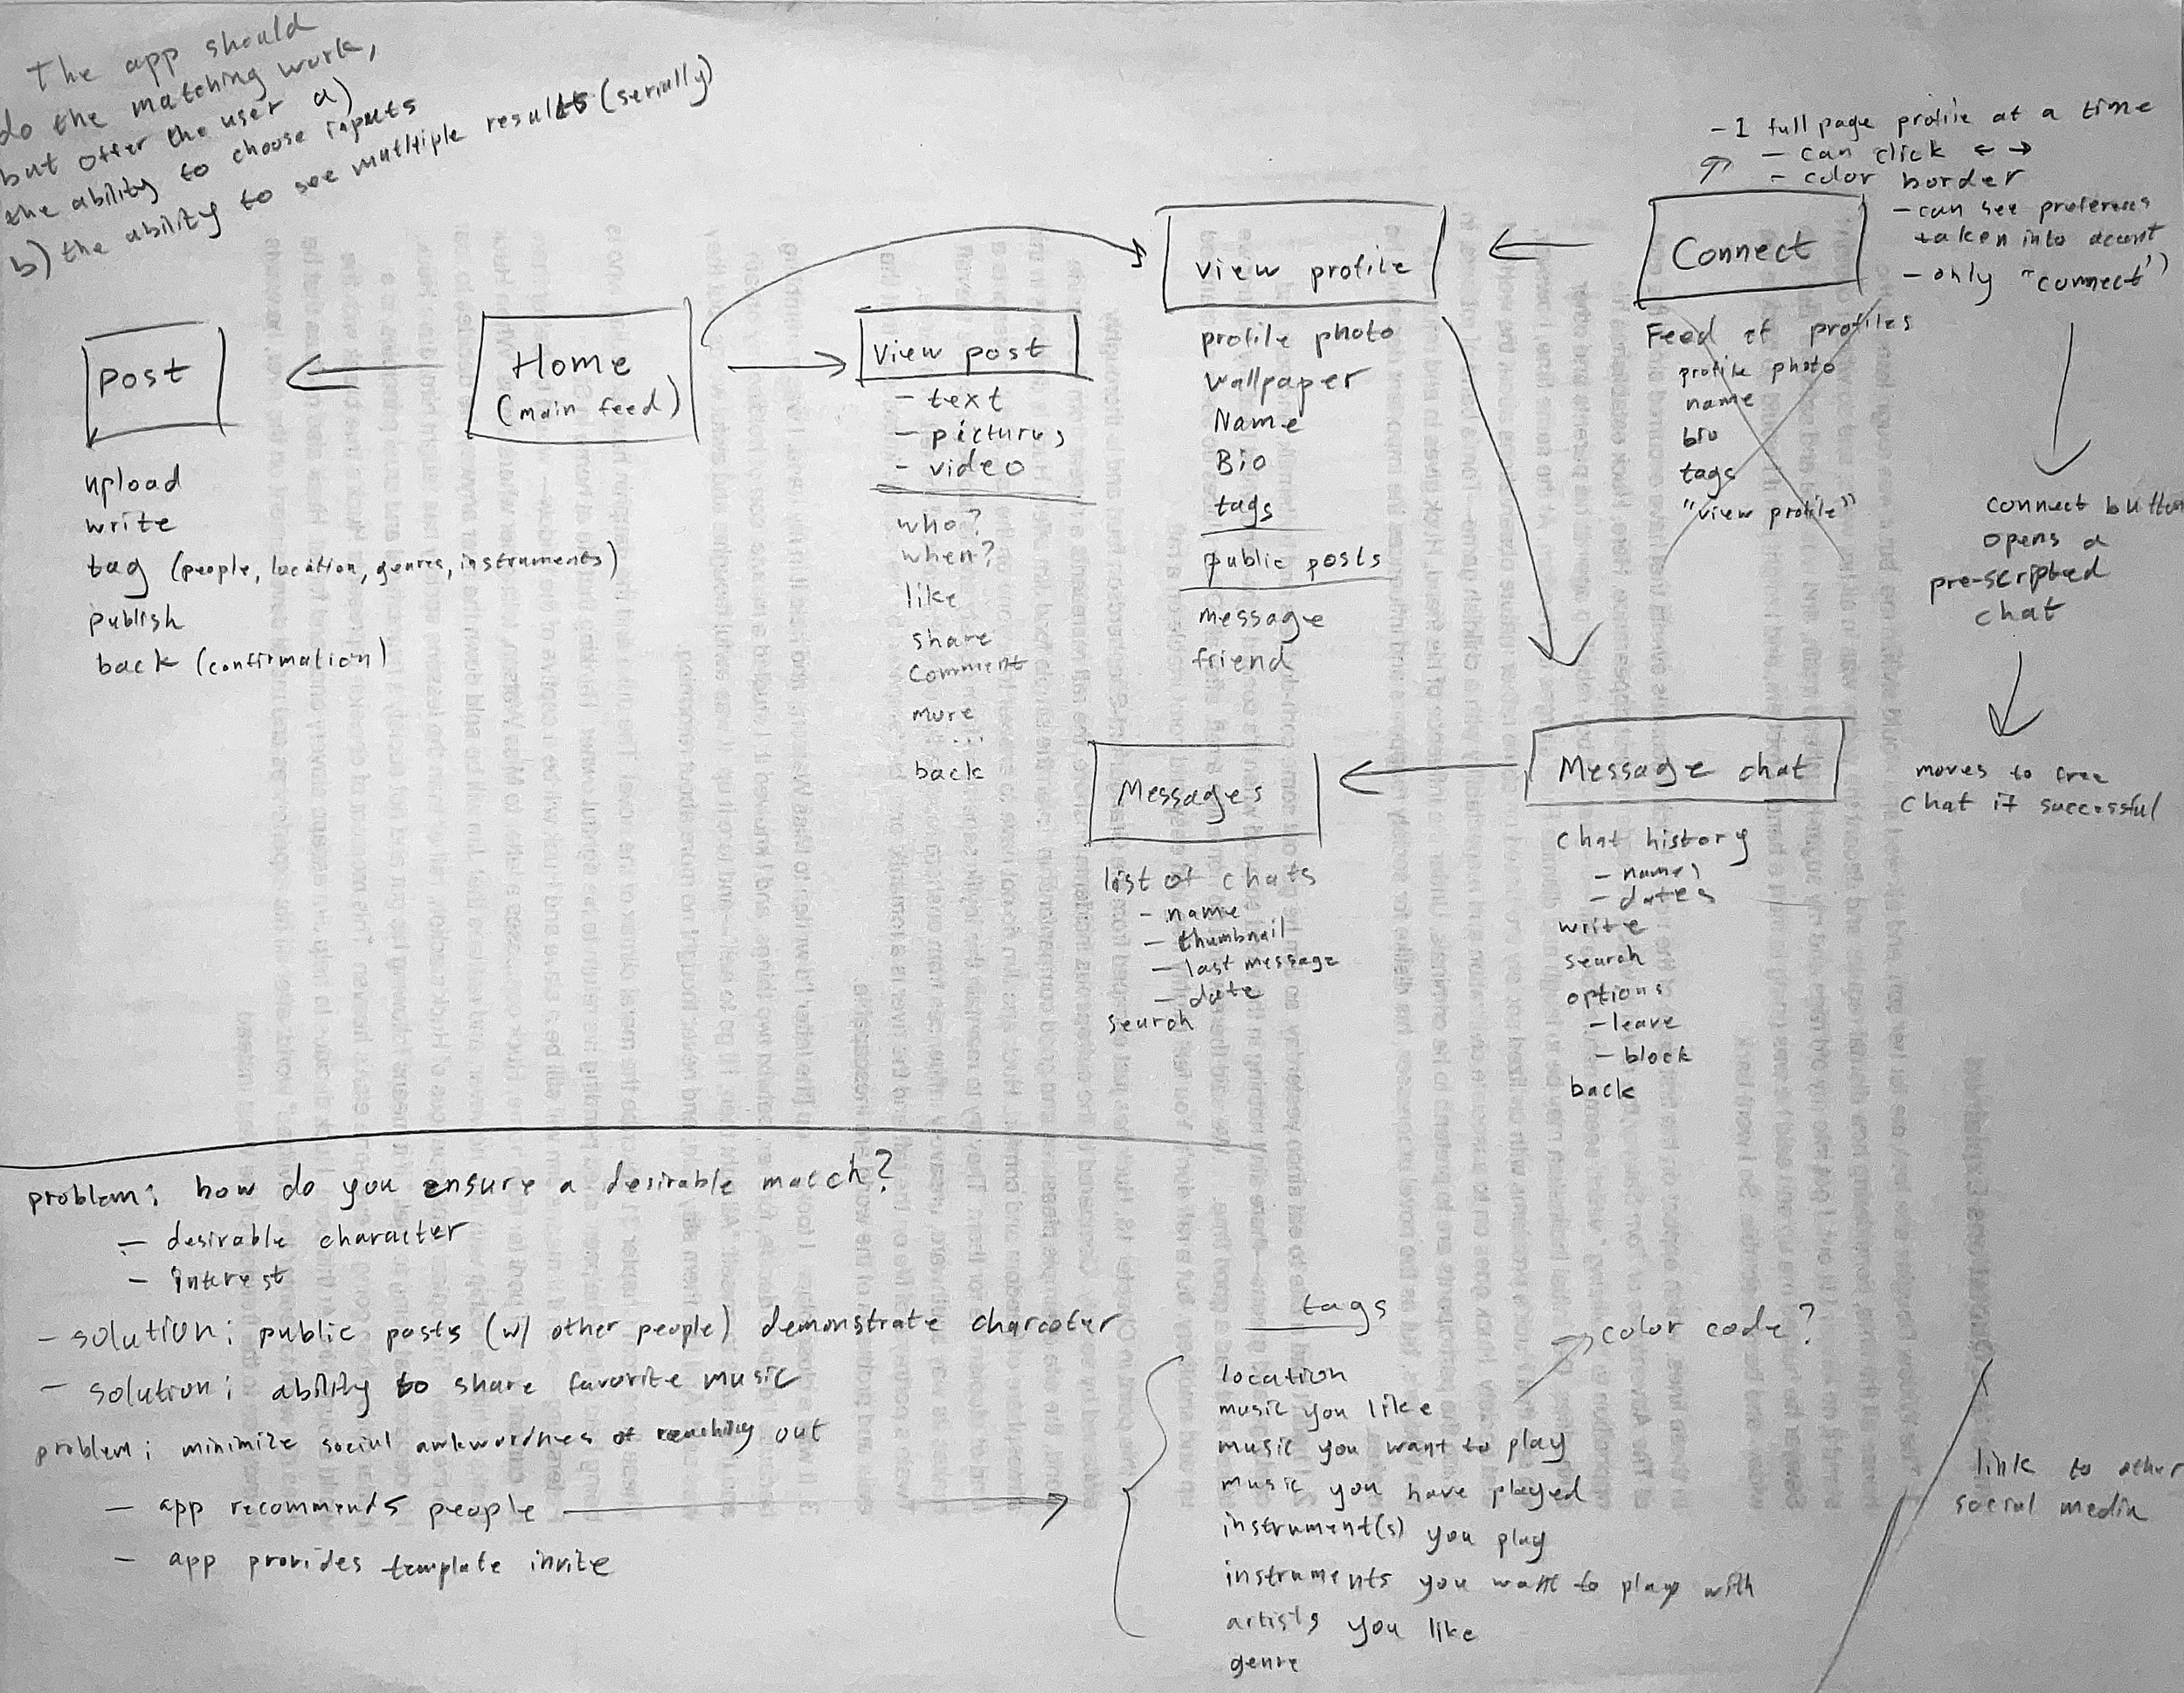 The app should
do the matching work,
but offer the user a)
the ability to choose inputs
b) the ability to see multiple results (serially)
- 1 full page profile at a time
- can click ← →
- color border
- can see preferences
taken into account
- only "connect")
Post
upload
write
tag (people, location, genres, instruments)
publish
back (confirmation)
Home
(main feed)
View post
- text
- pictures
- video
who?
when?
like
share
comment
more
...
back
View profile
profile photo
wallpaper
Name
Bio
tags
public posts
message
friend
Connect
Feed of profiles
profile photo
name
bio
tags
"view profile"
connect button
opens a
pre-scripted
chat
moves to free
chat if successful
Messages
list of chats
- name
- thumbnail
- last message
- date
search
Message chat
chat history
- names
- dates
write
search
options
- leave
- block
back
problem: how do you ensure a desirable match?
- desirable character
- interest
- solution: public posts (w/ other people) demonstrate character
- solution: ability to share favorite music
problem: minimize social awkwardness of reaching out
- app recommends people
- app provides template invite
tags
location
music you like
music you want to play
music you have played
instrument(s) you play
instruments you want to play with
artists you like
genre
color code?
link to other
social media